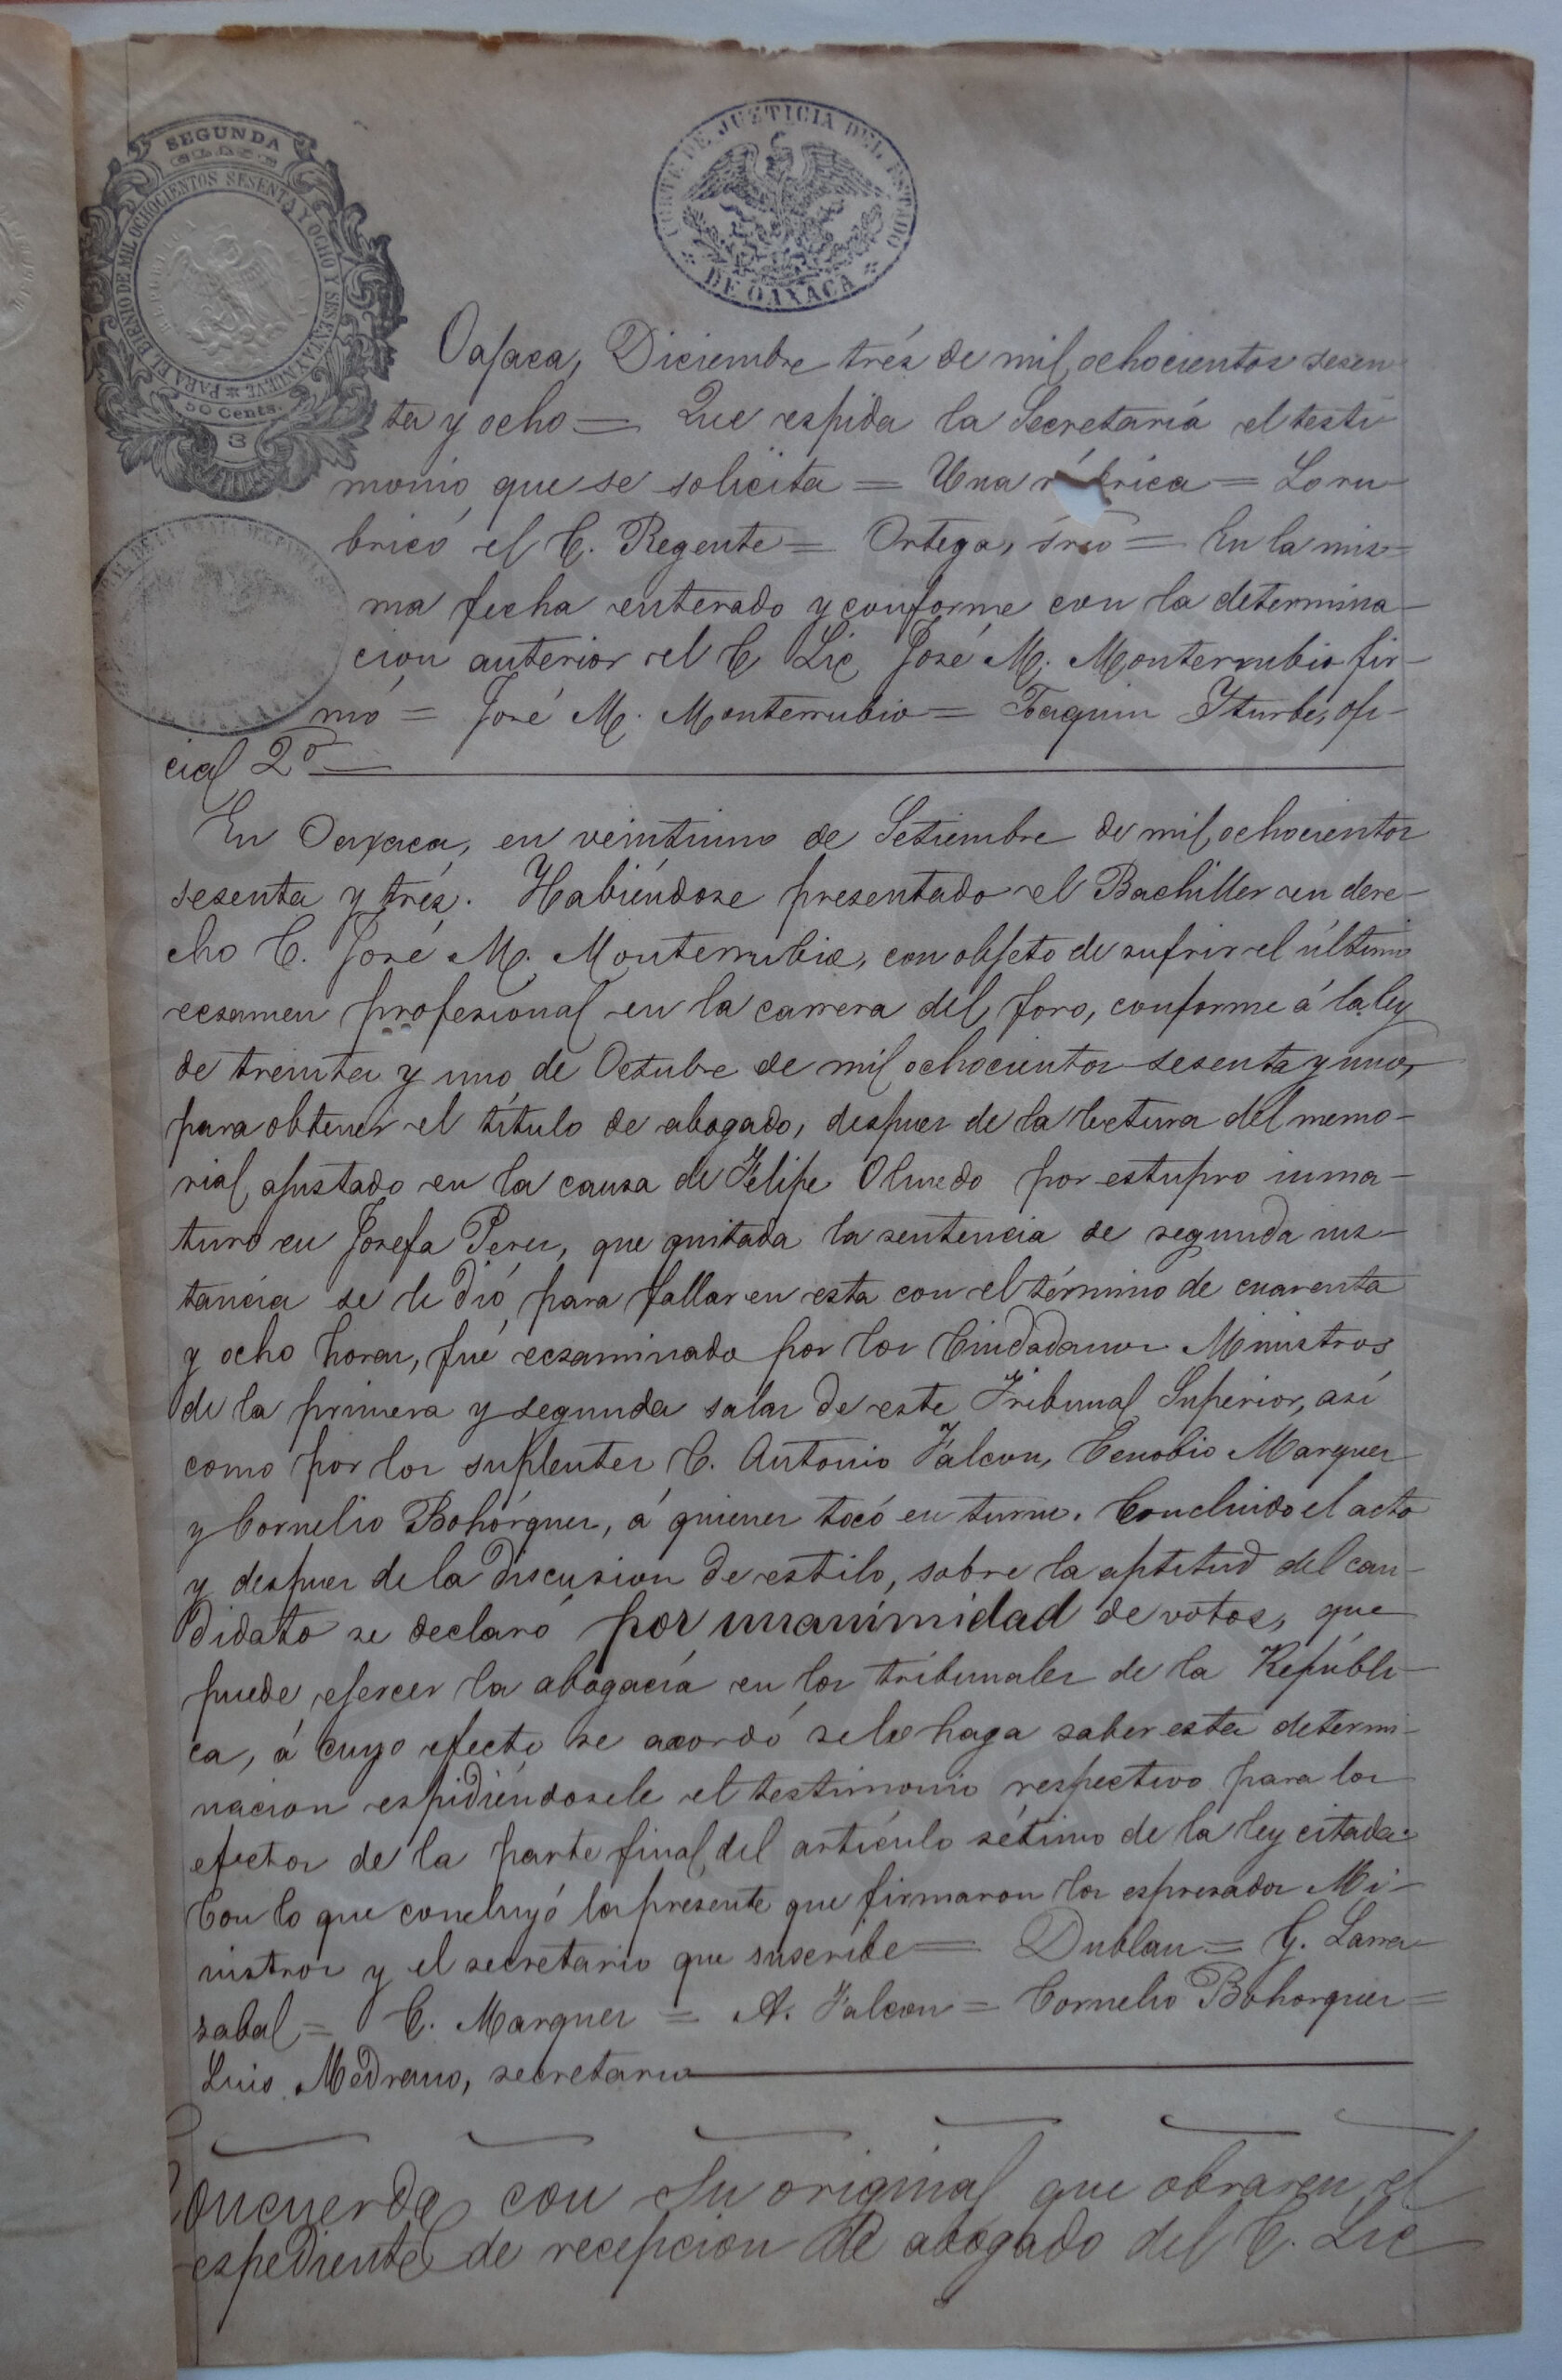 SEGUNDA
CLASE
PARA EL BIENIO DE MIL OCHOCIENTOS SESENTA Y OCHO Y SESENTA Y NUEVE
50 Cents.
3
CORTE DE JUSTICIA DEL ESTADO
DE OAXACA
Oajaca, Diciembre trés de mil ochocientos sesen
ta y ocho = Que espida la Secretaría el testi
monio que se solicita = Una rúbrica = Lo ru
bricó el C. Regente = Ortega, srio = En la mis=
ma fecha enterado y conforme con la determina-
cion anterior el C Lic José M. Monterrubio fir-
mó = José M. Monterrubio = Joaquin Yturbe, ofi-
cial 2º
En Oaxaca, en veintiuno de Setiembre de mil ochocientos
sesenta y trés. Habiéndose presentado el Bachiller en dere-
cho C. José M. Monterrubio, con objeto de sufrir el último
ecsamen profesional en la carrera del foro, conforme á la ley
de treinta y uno de Octubre de mil ochocientos sesenta y uno,
para obtener el título de abogado, despues de la lectura del memo-
rial ajustado en la causa de Felipe Olmedo por estupro inma-
turo en Josefa Perez, que quitada la sentencia de segunda ins-
tancia se le dió para fallar en esta con el término de cuarenta
y ocho horas, fué ecsaminado por los Ciudadanos Ministros
de la primera y segunda salas de este Tribunal Superior, así
como por los suplentes C. Antonio Falcon, Cenobio Marquez
y Cornelio Bohórquez, á quienes tocó en turno. Concluido el acto
y despues de la discusion de estilo, sobre la aptitud del can-
didato se declaró por unanimidad de votos, que
puede ejercer la abogacía en los tribunales de la Repúbli-
ca, á cuyo efecto se acordó se le haga saber esta determi-
nacion espidiéndosele el testimonio respectivo para los
efectos de la parte final del artículo sétimo de la ley citada.
Con lo que concluyó la presente que firmaron los espresados Mi-
nistros y el secretario que suscribe = Dublan = G. Larra-
zabal = C. Marquez = A. Falcon = Cornelio Bohorquez =
Luis Medrano, secretario
Concuerda con su original que obra en el
espediente de recepcion de abogado del C. Lic